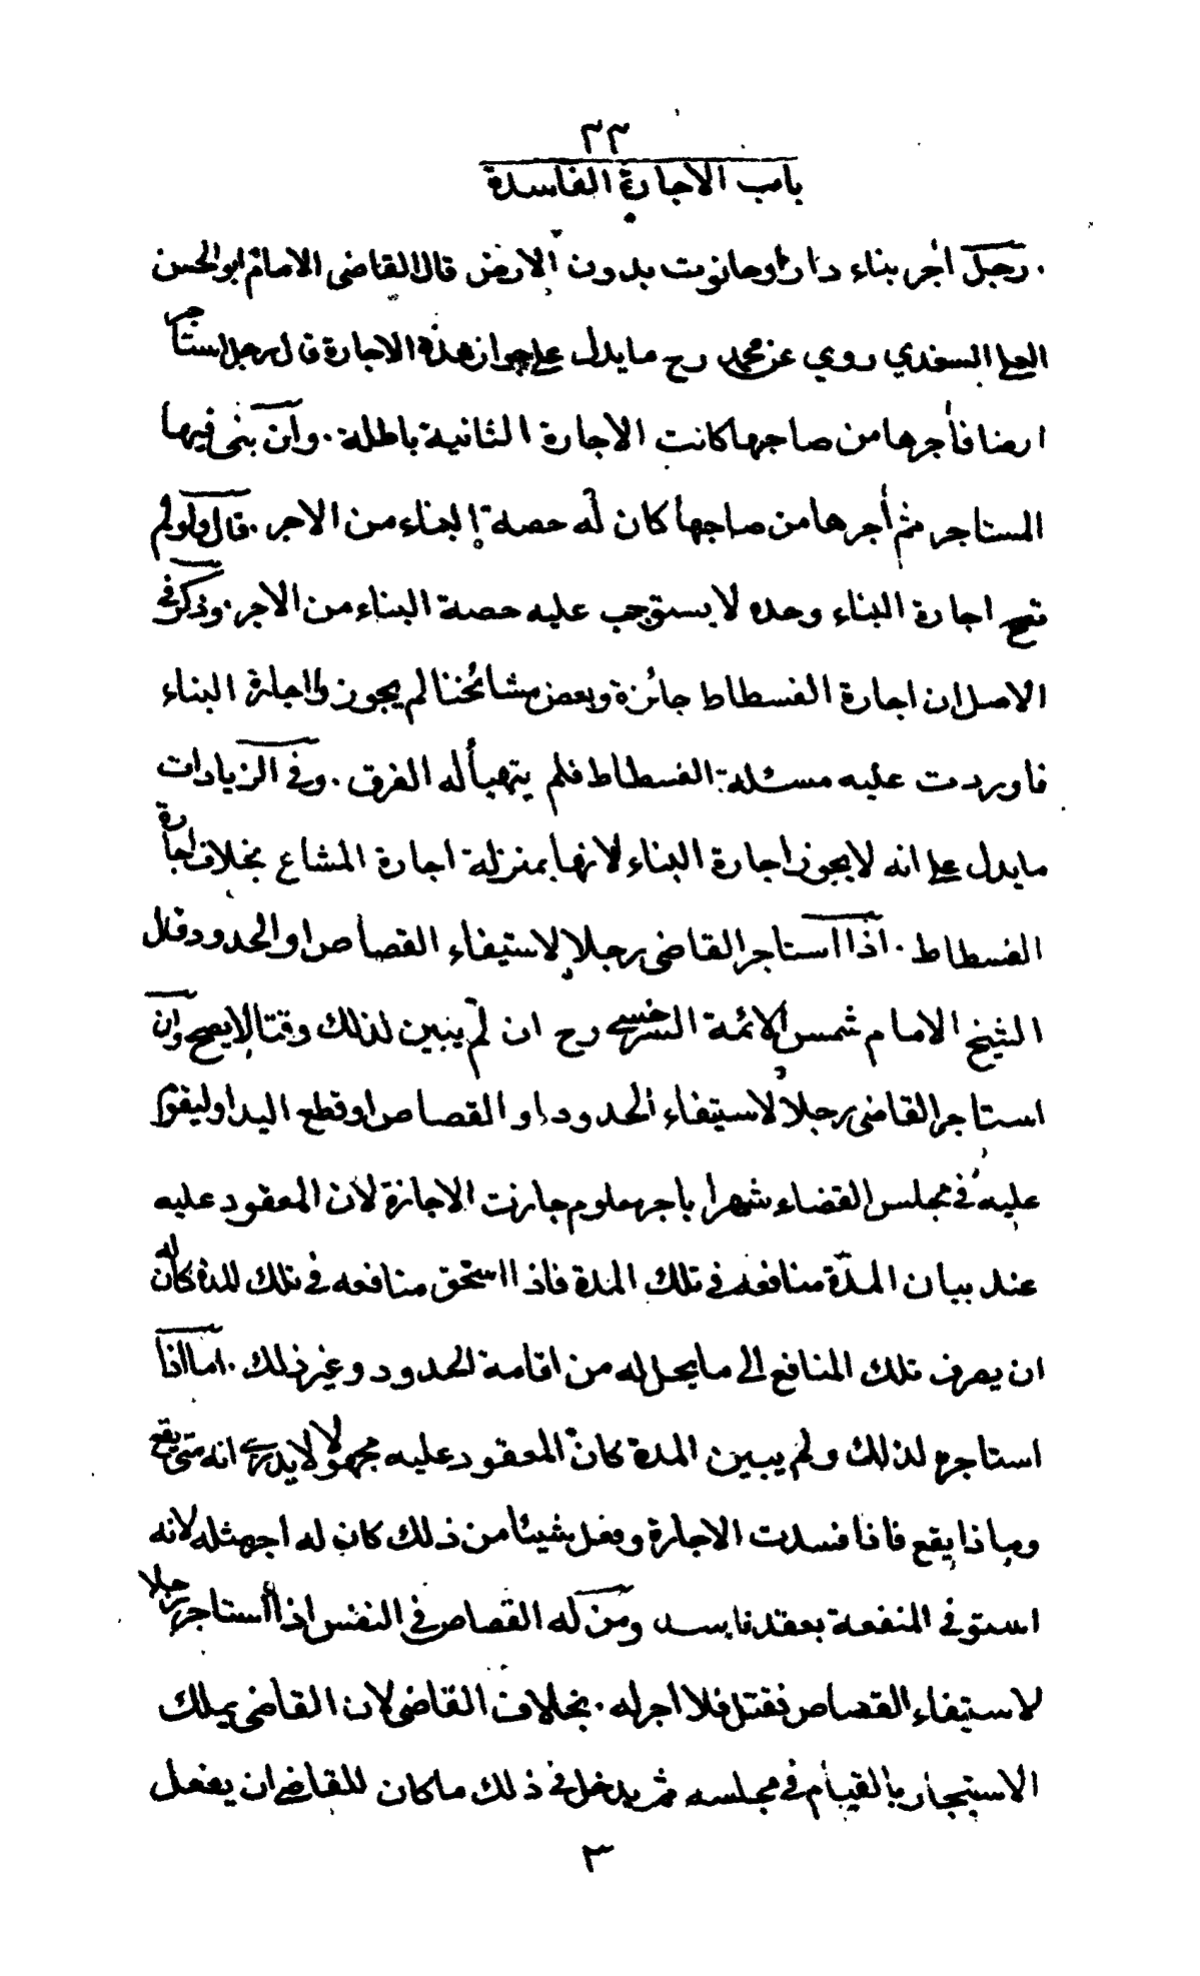 ٣٣
باب الاجارة الفاسدة
رجل اجر بناء دار او حانوت بدون الارض قال القاضى الامام ابو الحسن
على السغدي روي عن محمد رح ما يدل على جواز هذه الاجارة قال رجل استاجر
ارضا فأجرها من صاحبها كانت الاجارة الثانية باطلة . وان بنى فيها
المستاجر ثم أجرها من صاحبها كان له حصة البناء من الاجر . قال ولو لم
تصح اجارة البناء وحده لا يستوجب عليه حصة البناء من الاجر . وذكر في
الاصل ان اجارة الفسطاط جائزة وبعض مشائخنا لم يجوزوا اجارة البناء
فاوردت عليه مسئلة الفسطاط فلم يتهيأ له الفرق . وفي الزيادات
ما يدل على انه لا يجوز اجارة البناء لانها بمنزلة اجارة المشاع بخلاف اجارة
الفسطاط . اذا استاجر القاضى رجلا لاستيفاء القصاص او الحدود قال
الشيخ الامام شمس الائمة السرخسي رح ان لم يبين لذلك وقتا لا يصح وان
استاجر القاضى رجلا لاستيفاء الحدود او القصاص او قطع اليد او ليقوم
عليه في مجلس القضاء شهرا باجر معلوم جازت الاجازة لان المعقود عليه
عند بيان المدة منافعه في تلك المدة فاذا استحق منافعه في تلك المدة كان له
ان يصرف تلك المنافع الى ما يحل له من اقامة الحدود وغير ذلك . اما اذا
استاجره لذلك ولم يبين المدة كان المعقود عليه مجهولا لا يدرى انه متى يقع
وماذا يقع فاذا فسدت الاجارة وفعل شيئا من ذلك كان له اجر مثله لانه
استوفى المنفعة بعقد فاسد ومن له القصاص في النفس اذا استاجر رجلا
لاستيفاء القصاص فقتل فلا اجر له . بخلاف القاضى لان القاضى يملك
الاستيجار بالقيام في مجلسه ثم يدخل في ذلك ما كان للقاضى ان يفعل
٣